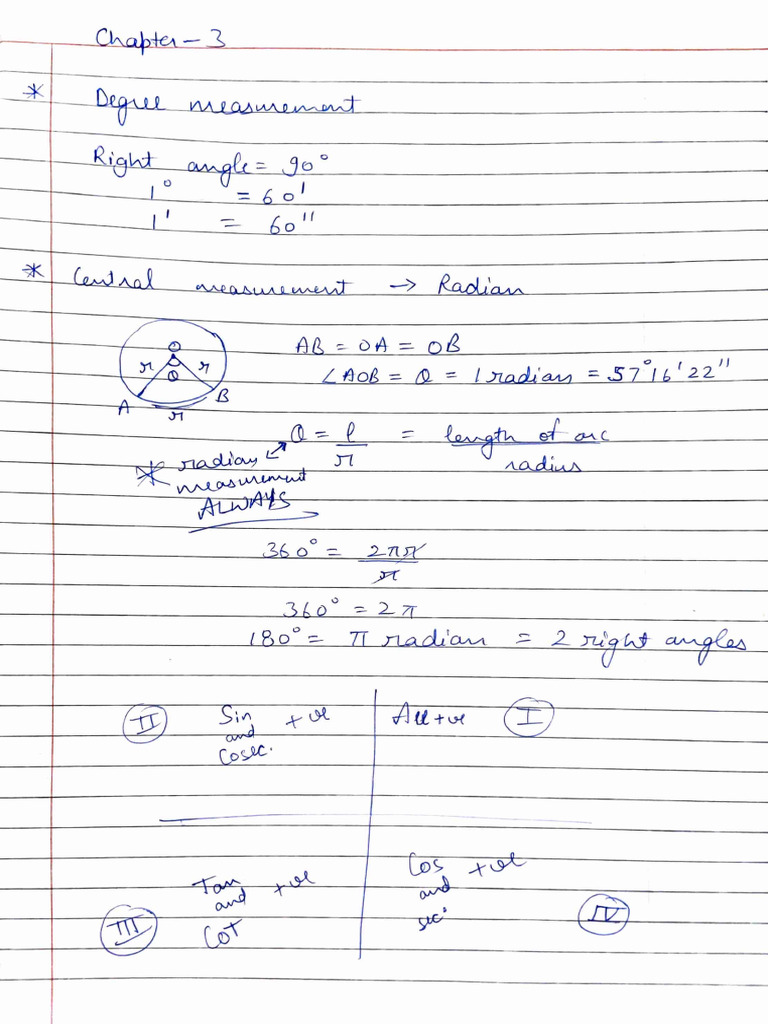 Chapter - 3
* Degree measurement
Right angle = 90°
1° = 60'
1' = 60''
* Central measurement → Radian
O
r r
θ
A B
r
AB = OA = OB
∠AOB = θ = 1 radian = 57°16'22''
θ = l/r = length of arc/radius
* radian measurement
ALWAYS
360° = 2πr/r
360° = 2π
180° = π radian = 2 right angles
II Sin and Cosec. +ve
All +ve I
III Tan and Cot +ve
Cos and sec. +ve IV